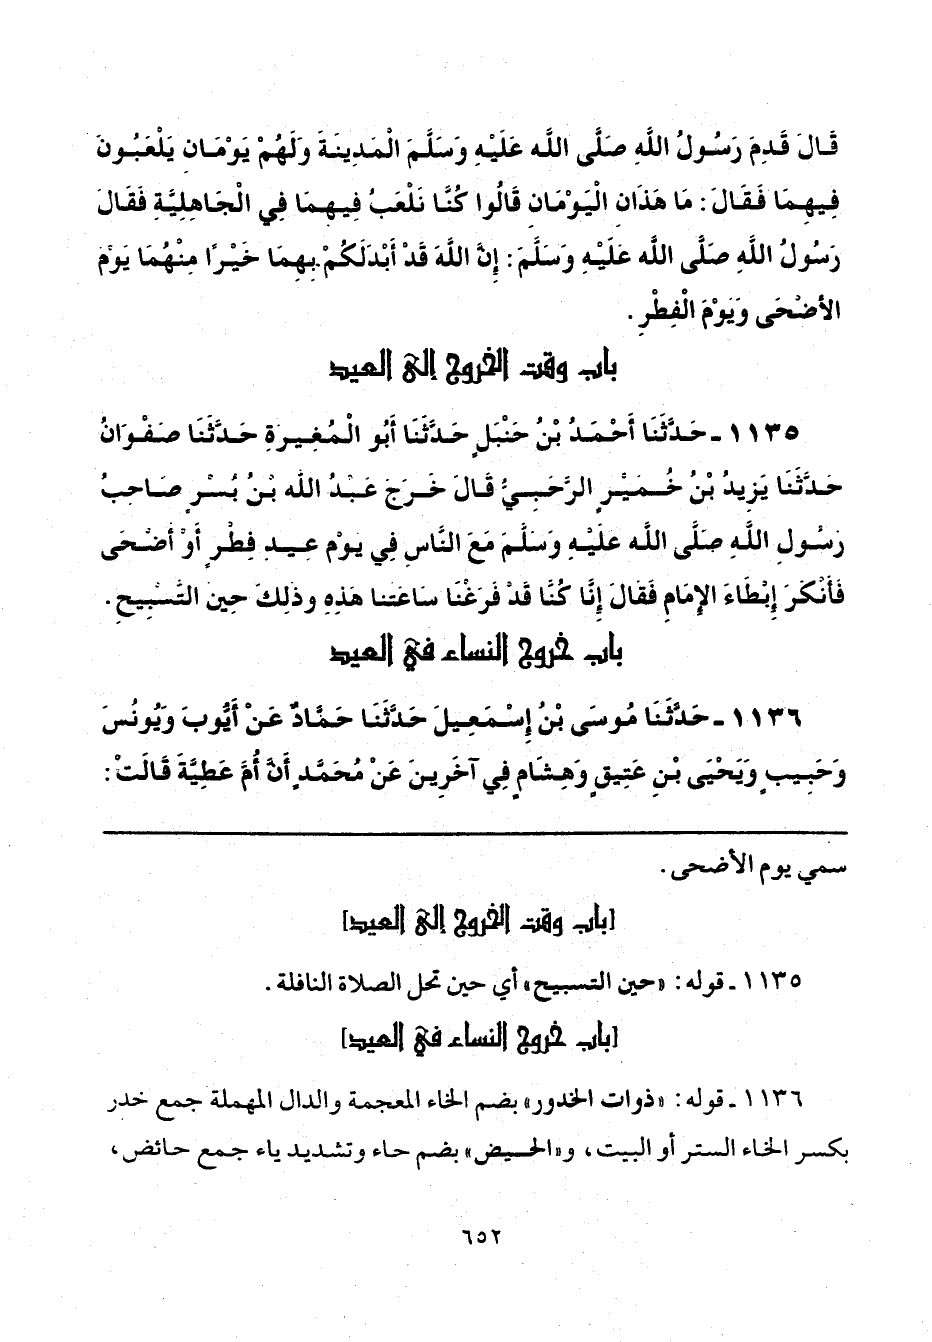 قَالَ قَدِمَ رَسُولُ اللَّهِ صَلَّى اللَّه عَلَيْهِ وَسَلَّمَ الْمَدِينَةَ وَلَهُمْ يَوْمَانِ يَلْعَبُونَ
فِيهِمَا فَقَالَ: مَا هَذَانِ الْيَوْمَانِ قَالُوا كُنَّا نَلْعَبُ فِيهِمَا فِي الْجَاهِلِيَّةِ فَقَالَ
رَسُولُ اللَّهِ صَلَّى اللَّه عَلَيْهِ وَسَلَّمَ: إِنَّ اللَّهَ قَدْ أَبْدَلَكُمْ بِهِمَا خَيْرًا مِنْهُمَا يَوْمَ
الأضْحَى وَيَوْمَ الْفِطْرِ.
باب وقت الخروج إلى العيد
١١٣٥ ـ حَدَّثَنَا أَحْمَدُ بْنُ حَنْبَلٍ حَدَّثَنَا أَبُو الْمُغِيرَةِ حَدَّثَنَا صَفْوَانُ
حَدَّثَنَا يَزِيدُ بْنُ خُمَيْرٍ الرَّحَبِيُّ قَالَ خَرَجَ عَبْدُ اللَّه بْنُ بُسْرٍ صَاحِبُ
رَسُولِ اللَّهِ صَلَّى اللَّه عَلَيْهِ وَسَلَّمَ مَعَ النَّاسِ فِي يَوْمِ عِيدِ فِطْرٍ أَوْ أَضْحَى
فَأَنْكَرَ إِبْطَاءَ الإِمَامِ فَقَالَ إِنَّا كُنَّا قَدْ فَرَغْنَا سَاعَتنا هَذِهِ وذلِكَ حِين التَّسْبِيحِ.
باب خروج النساء في العيد
١١٣٦ ـ حَدَّثَنَا مُوسَى بْنُ إِسْمَعِيلَ حَدَّثَنَا حَمَّادٌ عَنْ أَيُّوبَ وَيُونُسَ
وَحَبِيبٍ وَيَحْيَى بْنِ عَتِيقٍ وَهِشَامٍ فِي آخَرِينَ عَنْ مُحَمَّدٍ أَنَّ أُمَّ عَطِيَّةَ قَالَتْ:
سمي يوم الأضحى.
[باب وقت الخروج إلى العيد]
١١٣٥ ـ قوله: «حين التسبيح» أي حين تحل الصلاة النافلة.
[باب خروج النساء في العيد]
١١٣٦ ـ قوله: «ذوات الخدور» بضم الخاء المعجمة والدال المهملة جمع خدر
بكسر الخاء الستر أو البيت، و«الحيض» بضم حاء وتشديد ياء جمع حائض،
٦٥٢